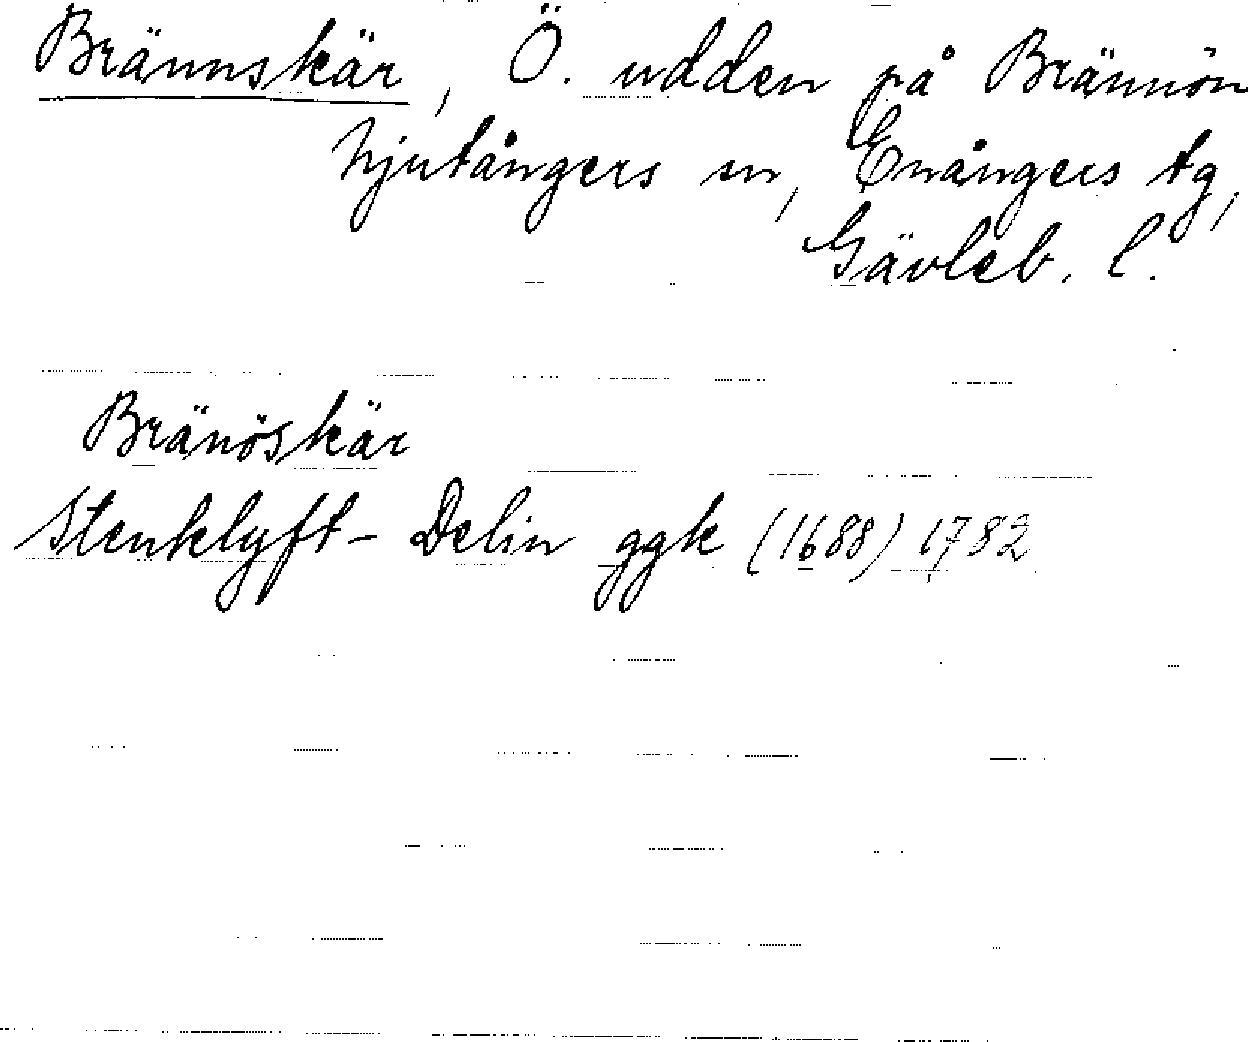 Brännskär, Ö. udden på Brännön
Njutångers sn, Enångers tg,
Gävleb. l.
Bränöskär
Stenklyft - Delin ggk (1688) 1782